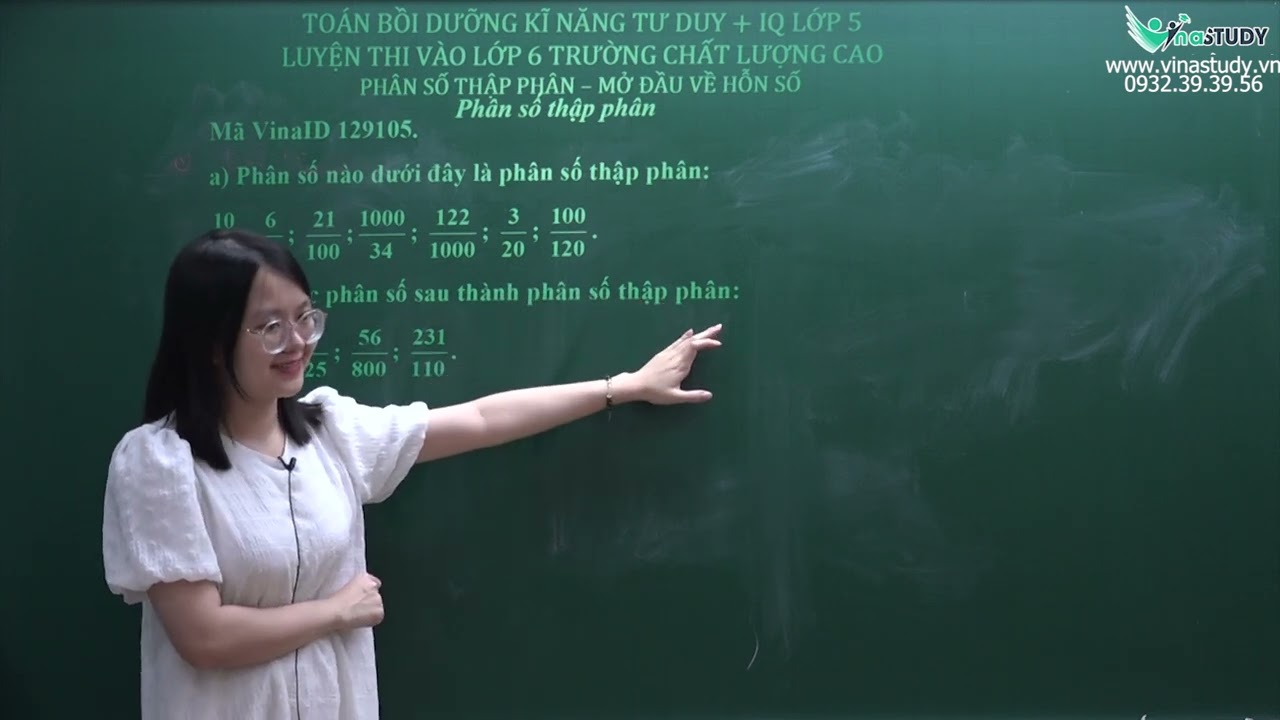 TOÁN BỒI DƯỠNG KĨ NĂNG TƯ DUY + IQ LỚP 5
LUYỆN THI VÀO LỚP 6 TRƯỜNG CHẤT LƯỢNG CAO
PHÂN SỐ THẬP PHÂN – MỞ ĐẦU VỀ HỖN SỐ
Phân số thập phân
Mã VinaID 129105.
a) Phân số nào dưới đây là phân số thập phân:
10 6 ; 21/100 ; 1000/34 ; 122/1000 ; 3/20 ; 100/120 .
phân số sau thành phân số thập phân:
25 ; 56/800 ; 231/110 .
VinaSTUDY
www.vinastudy.vn
0932.39.39.56